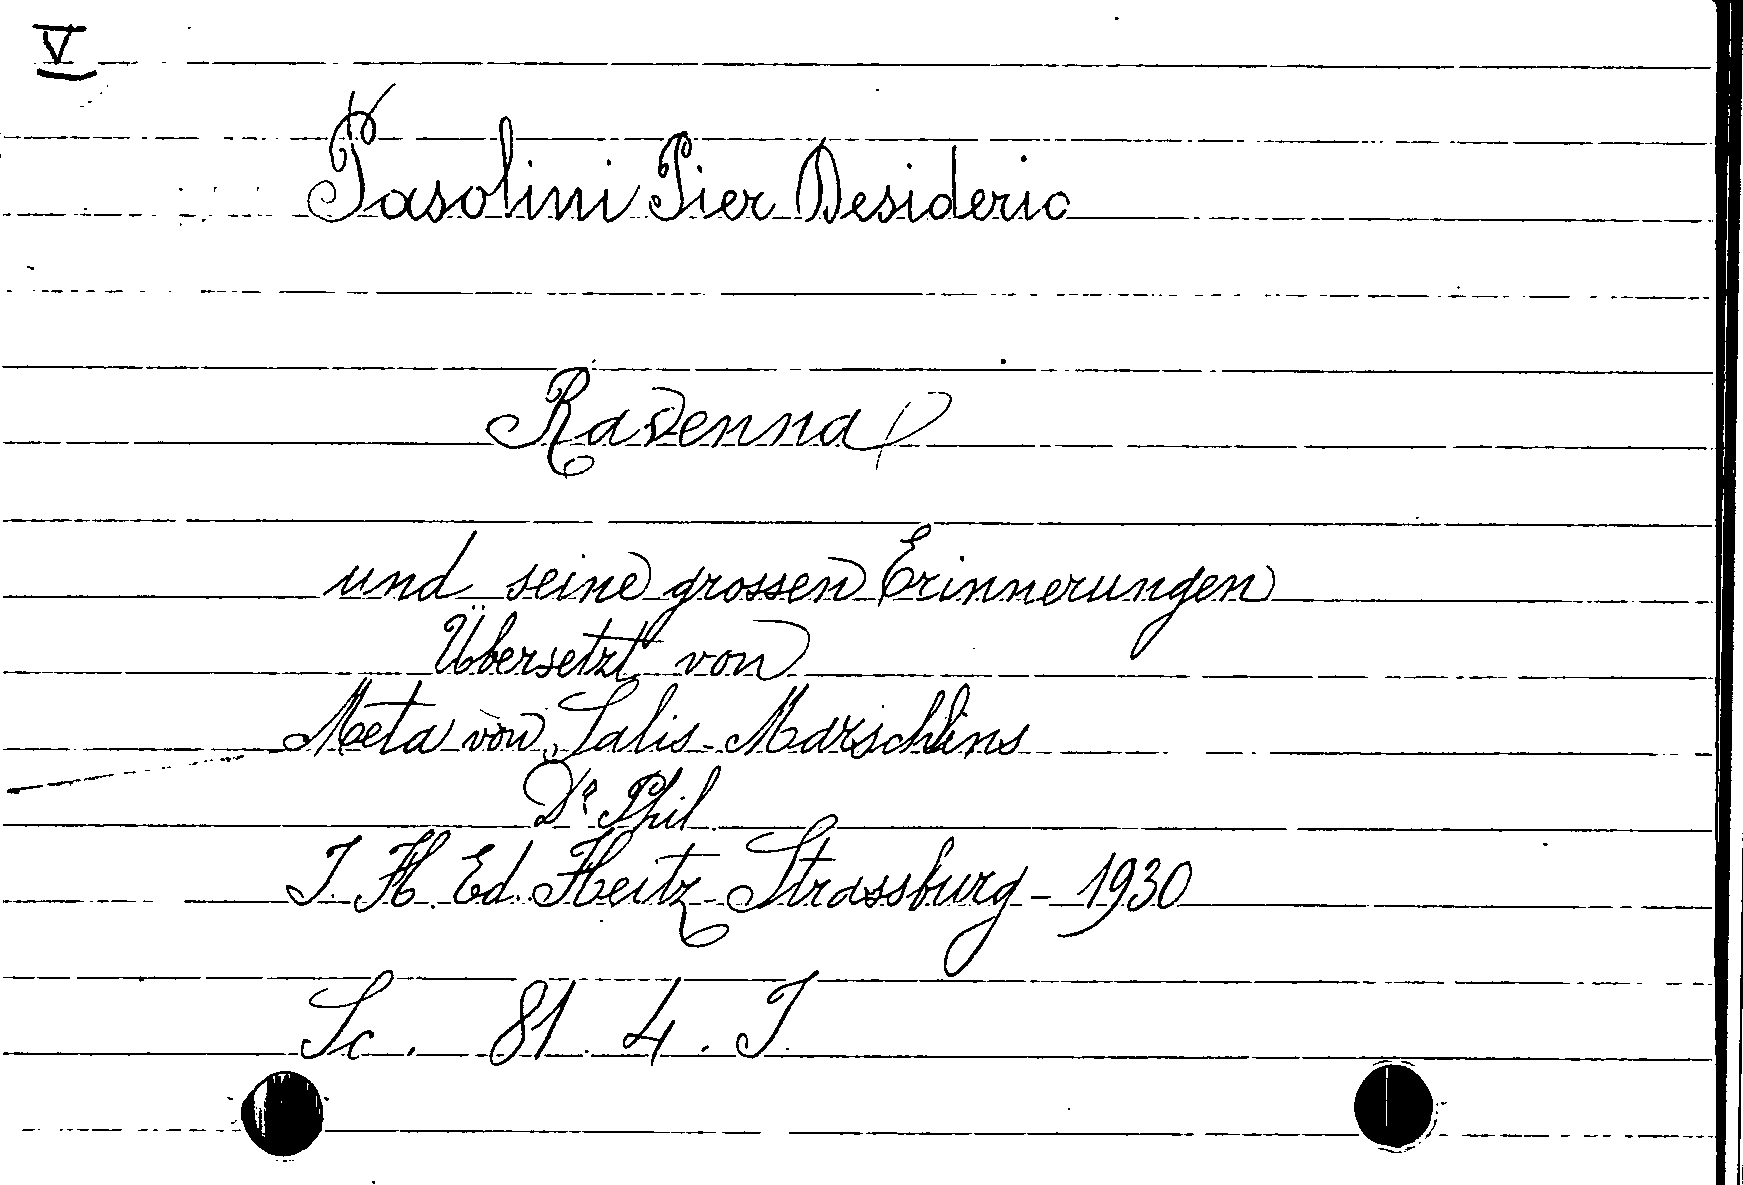 V
Pasolini Pier Desiderio
Ravenna
und seine grossen Erinnerungen
Übersetzt von
Meta von Salis-Marschlins
Dr Phil
J. H. Ed. Heitz - Strassburg - 1930
Sc. 81. 4. J